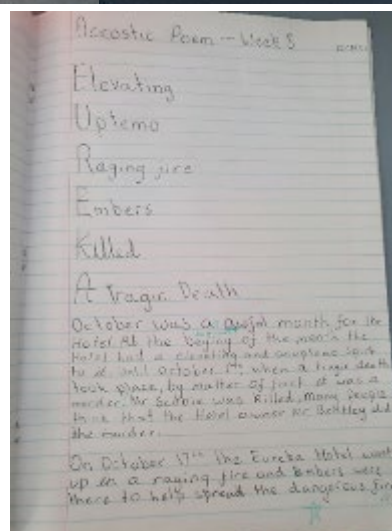 Accostic Poem - Week 3
Elevating
Uptemo
Raging fire
Embers
Killed
A Tragic Death
October was a awful month for the
Hotel. At the of the month the
Hotel had a elevating and
to it until October when a tragic death
took place, by matter of fact it was a
murder. Mr was killed, Many people
think that the Hotel owner Mr did
the murder.
On October 17th the Eureka Hotel went
up in a raging fire and Embers were
there to help spread the dangerous fire